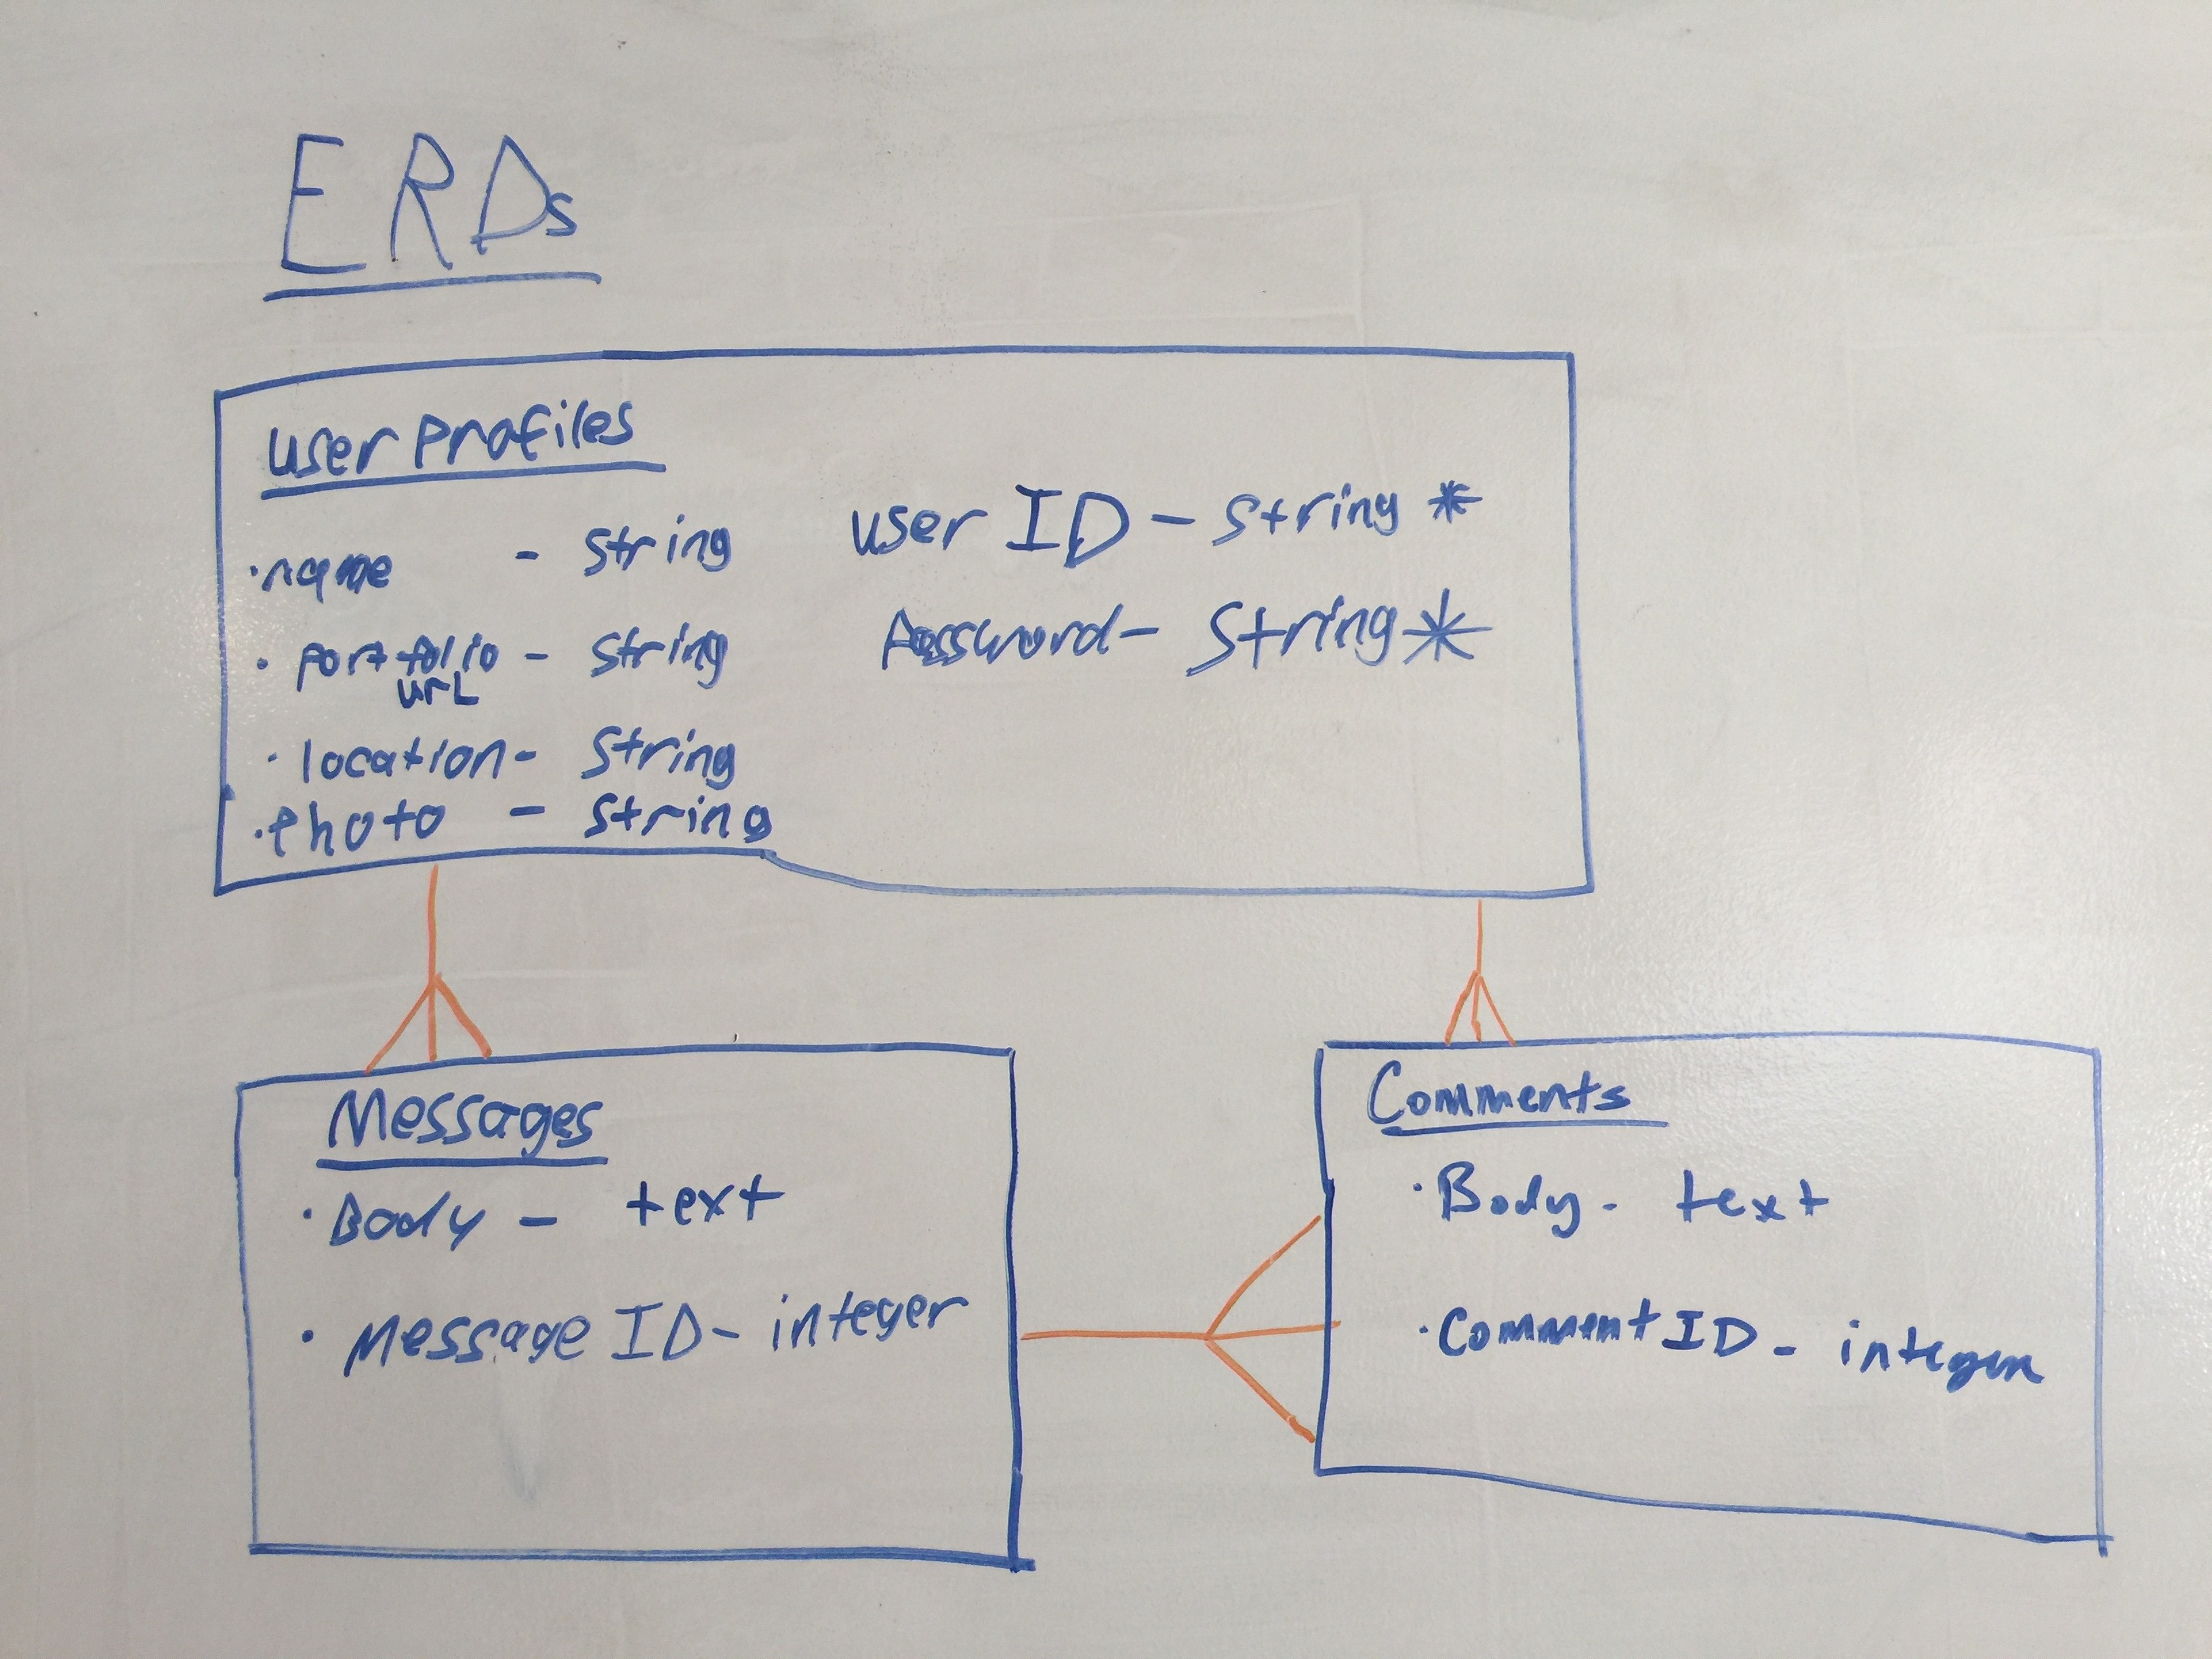 ERDs
User Profiles
·name - String
· portfolio - String
url
· location - String
·Photo - String
User ID - String *
Password - String *
Messages
· Body - text
· Message ID - integer
Comments
· Body - text
· Comment ID - integer